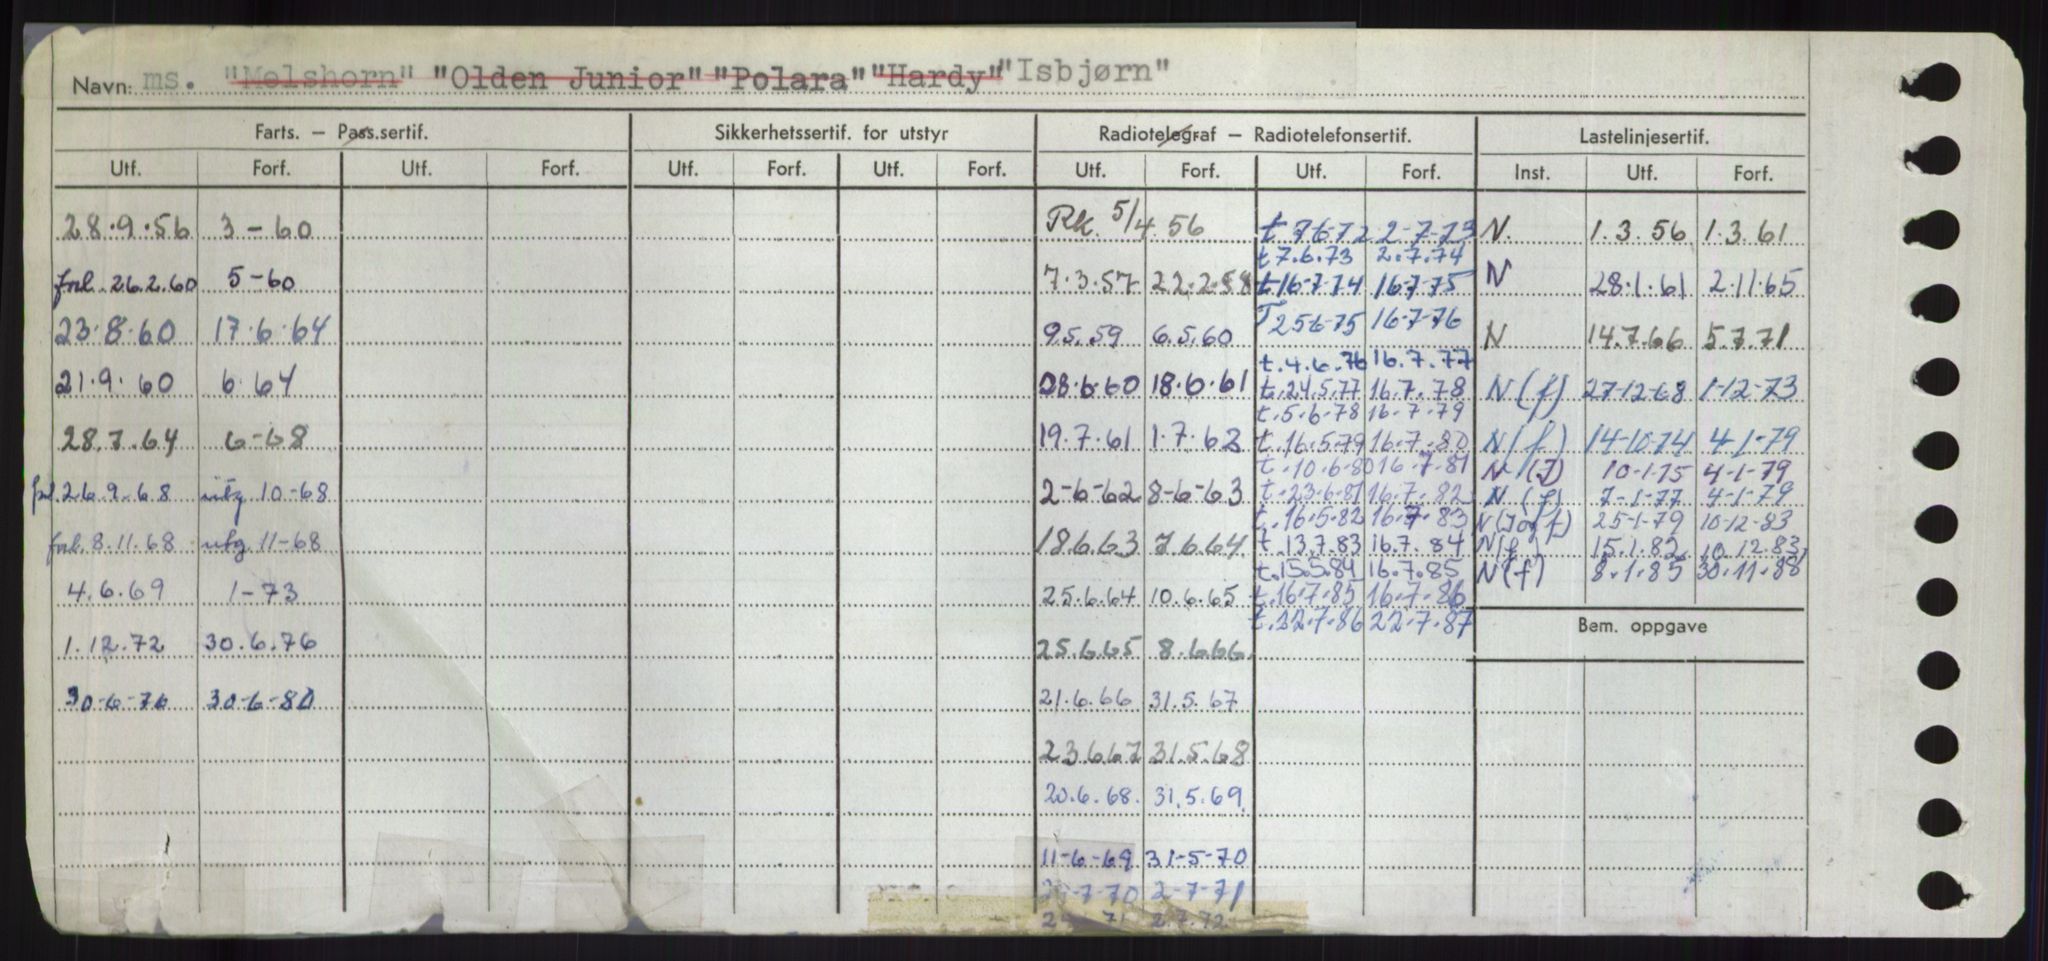 Navn: ms. "Melshorn" "Olden Junior" "Polara" "Hardy" "Isbjørn"
Farts. – Pass.sertif. Sikkerhetssertif. for utstyr Radiotelegraf – Radiotelefonsertif. Lastelinjesertif.
Utf. Forf. Utf. Forf. Utf. Forf. Utf. Forf. Utf. Forf. Utf. Forf. Inst. Utf. Forf.
28.9.56 3-60 Rk. 5/4.56 t 7-6-72 2-7-73 N. 1.3.56 1.3.61
t 7.6.73 2.7.74
fnl. 26.2.60 5-60 7.3.57 22.2.58 t 16-7-74 16-7-75 N 28.1.61 2.11.65
23.8.60 17.6.64 9.5.59 6.5.60 T 25-6-75 16-7-76 N 14.7.66 5.7.71
t. 4.6.76 16.7.77
21.9.60 6.64 28.6.60 18.6.61 t. 24.5.77 16.7.78 N (f) 27-12-68 1-12-73
t. 5.6.78 16.7.79
28.7.64 6-68 19.7.61 1.7.62 t. 16.5.79 16.7.80 N (f) 14-10-74 4-1-79
t. 10.6.80 16.7.81 N (J) 10-1-75 4-1-79
fnl. 26.9.68 utg. 10-68 2-6-62 8-6-63 t. 23.6.81 16.7.82 N (f) 7-1-77 4-1-79
t. 16.5.82 16.7.83 N (J og f) 25-1-79 10-12-83
fnl. 8.11.68 utg. 11-68 18.6.63 7.6.64 t. 13.7.83 16.7.84 N(f 15.1.82 10.12.83
t. 15.5.84 16.7.85 N (f) 8.1.85 30.11.88
4.6.69 1-73 25.6.64 10.6.65 t. 16.7.85 16.7.86
t. 22.7.86 22.7.87 Bem. oppgave
1.12.72 30.6.76 25.6.65 8.6.66
30-6-76 30-6-80 21.6.66 31.5.67
23.6.67 31.5.68
20.6.68. 31.5.69.
11-6-69 31-5-70
7-70 2-7-71
71 2.7.72